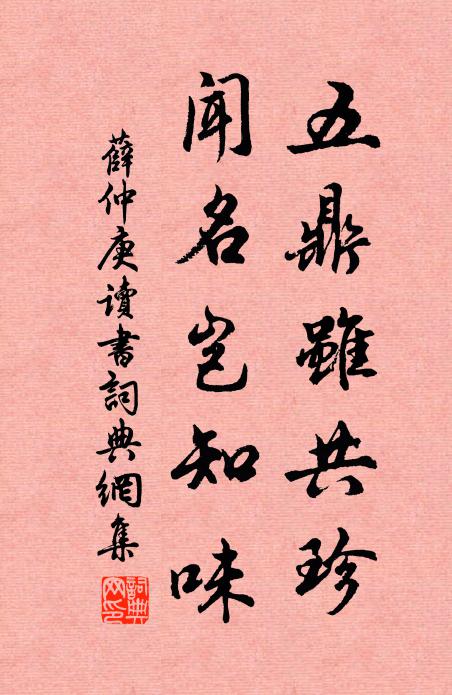 五鼎雖共珍
聞名豈知味
薛仲庚讀書詞典網集
詞典网印